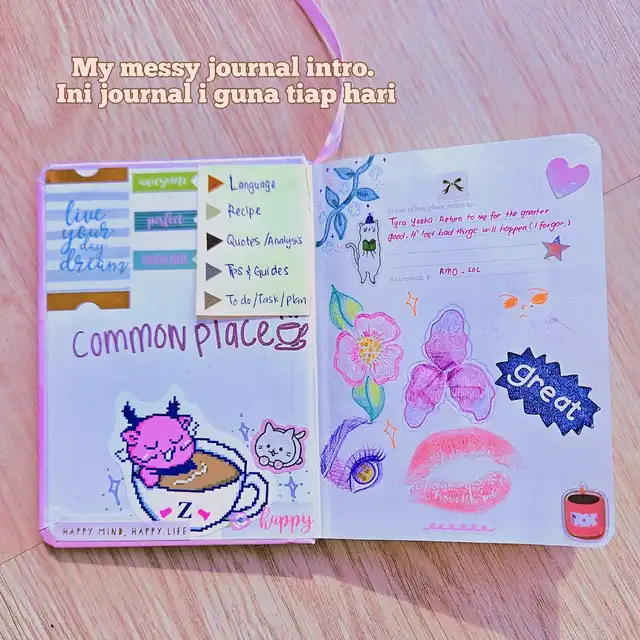 My messy journal intro.
Ini journal i guna tiap hari
awesome
perfect
live
your
day
dream
Language
Recipe
Quotes/Analysis
Tips & Guides
To do/Task/Plan
COMMONPLACE
Z
happy
HAPPY MIND, HAPPY LIFE
In case of loss, please return to:
Return to me for the greater
good. If lost bad things will happen (I forgor)
As a reward: $ RM0 - LOL
great